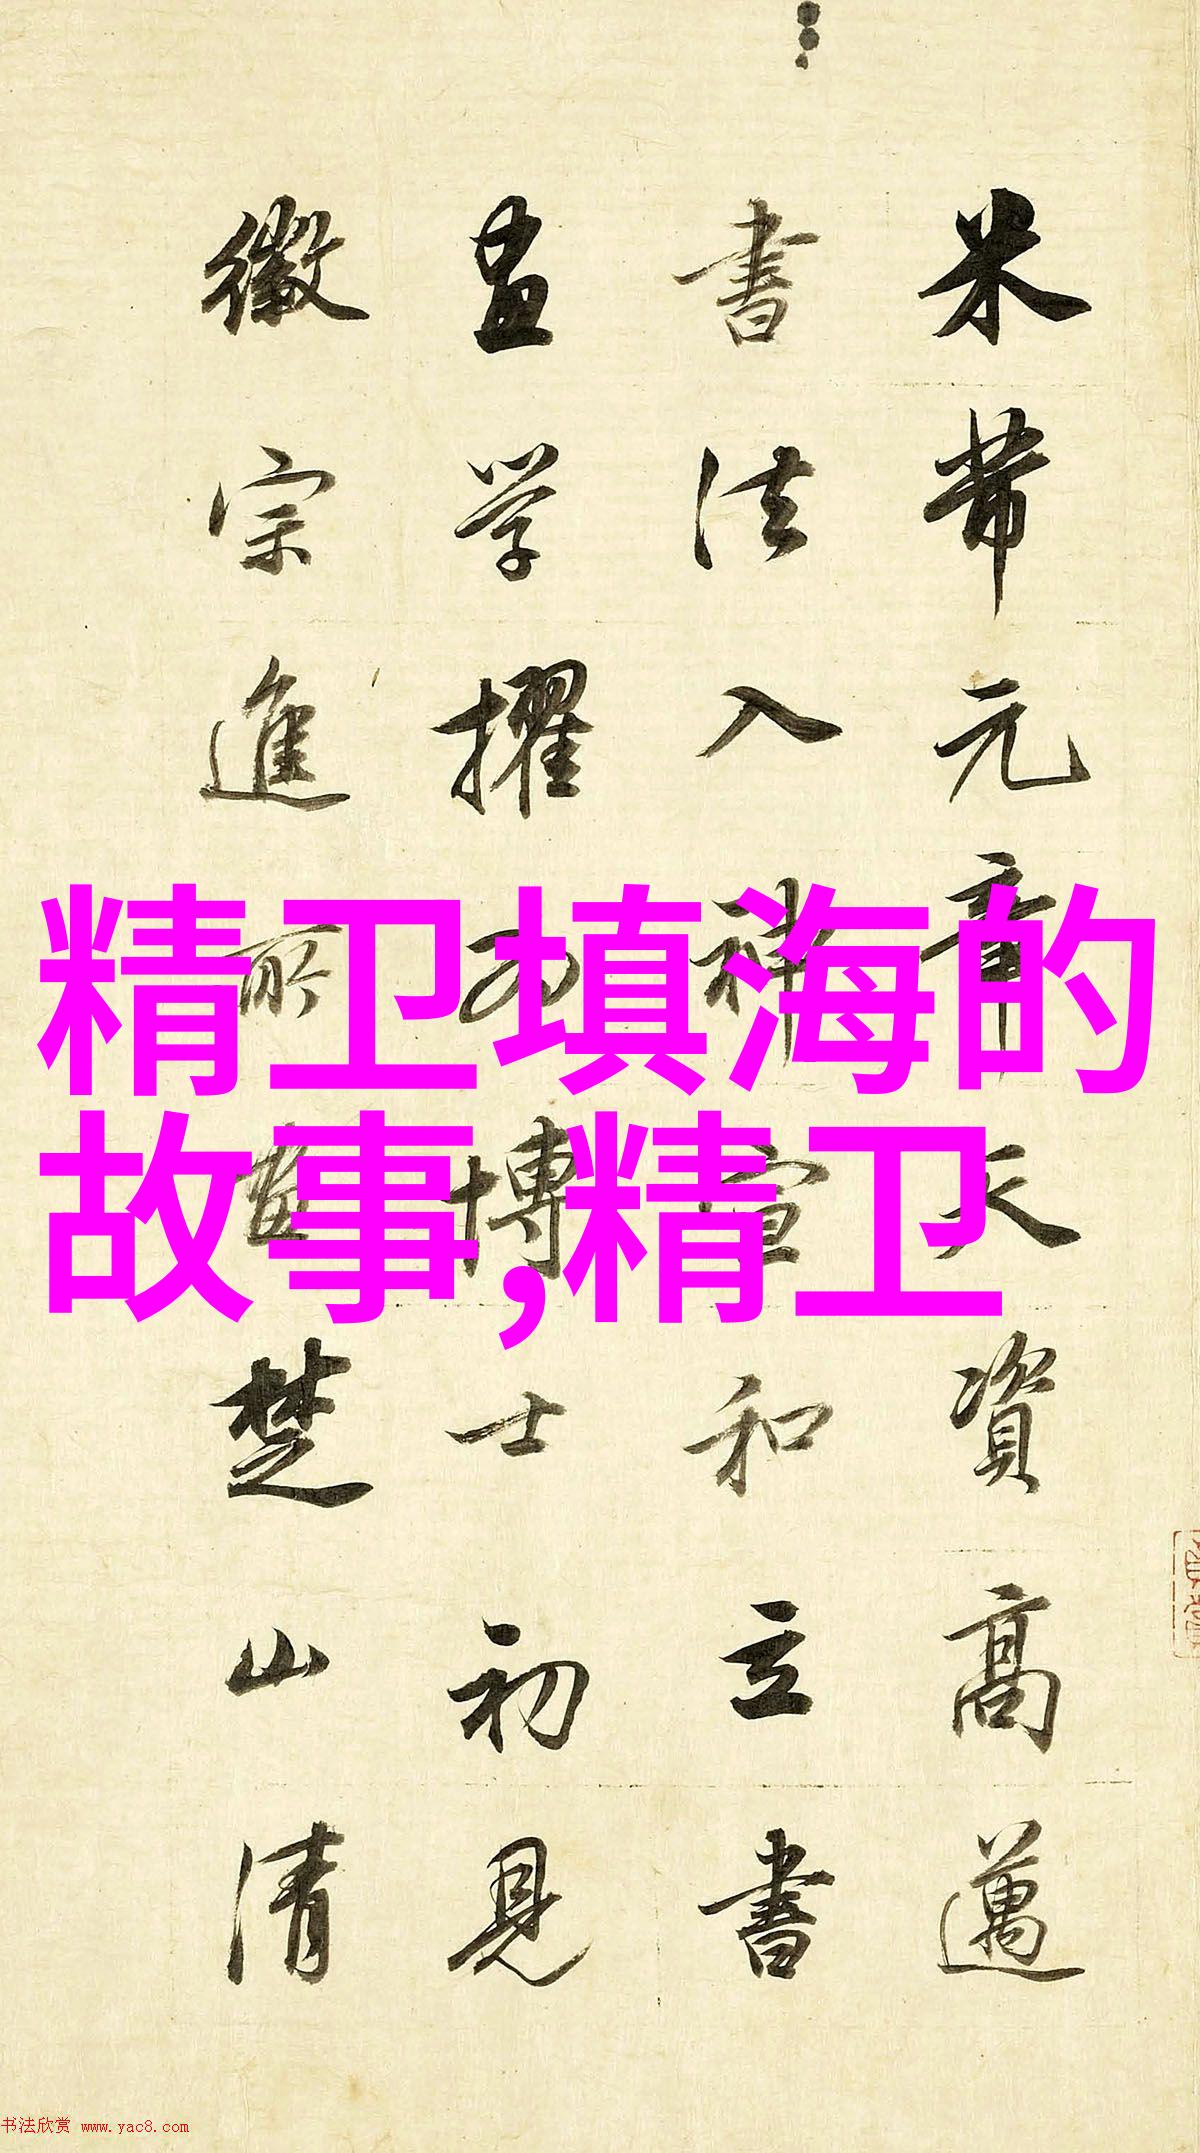 米芾元章天資高邁
書法入神宣和立書
畫学擢为博士初見
徽宗進所畫楚山清
精卫填海的
故事,精卫
书法欣赏 www.yac8.com